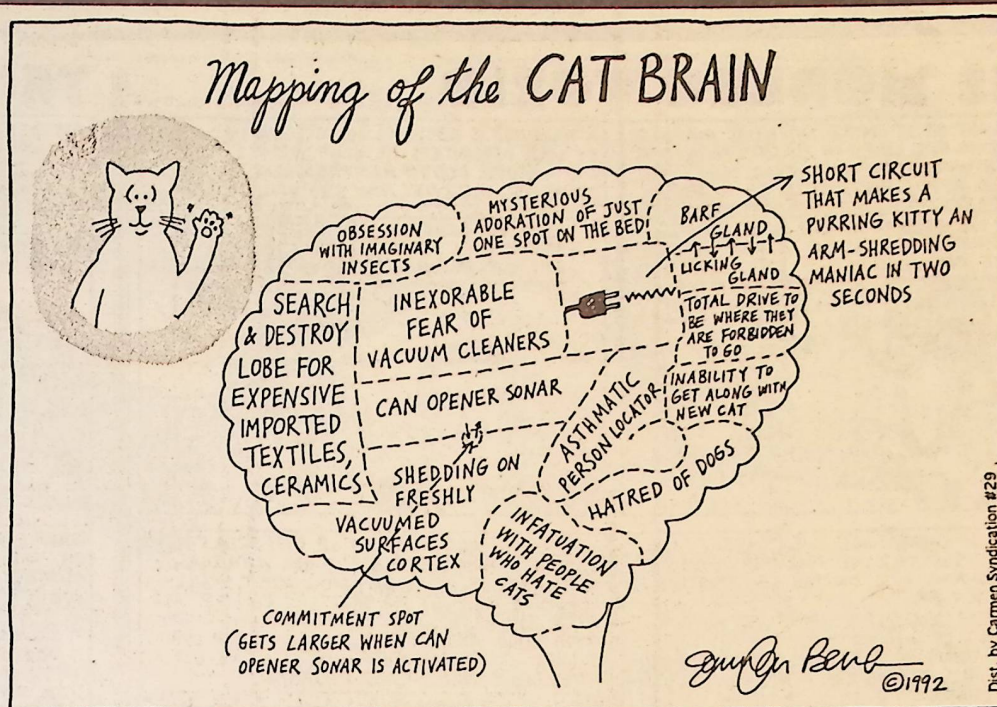 Mapping of the CAT BRAIN
OBSESSION
WITH IMAGINARY
INSECTS
MYSTERIOUS
ADORATION OF JUST
ONE SPOT ON THE BED!
BARF
GLAND
LICKING
GLAND
SHORT CIRCUIT
THAT MAKES A
PURRING KITTY AN
ARM-SHREDDING
MANIAC IN TWO
SECONDS
SEARCH
& DESTROY
LOBE FOR
EXPENSIVE
IMPORTED
TEXTILES,
CERAMICS
INEXORABLE
FEAR OF
VACUUM CLEANERS
TOTAL DRIVE TO
BE WHERE THEY
ARE FORBIDDEN
TO GO
CAN OPENER SONAR
ASTHMATIC
PERSON LOCATOR
INABILITY TO
GET ALONG WITH
NEW CAT
SHEDDING ON
FRESHLY
VACUUMED
SURFACES
CORTEX
HATRED OF DOGS
INFATUATION
WITH PEOPLE
WHO HATE
CATS
COMMITMENT SPOT
(GETS LARGER WHEN CAN
OPENER SONAR IS ACTIVATED)
©1992
Dist. by Carmen Syndication #29